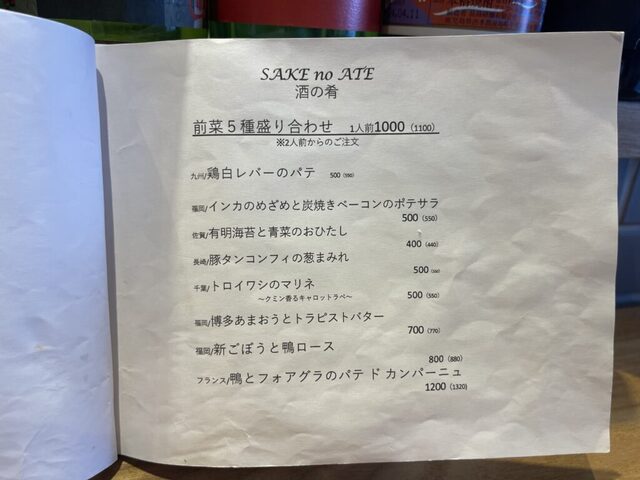 04.11
SAKE no ATE
酒の肴
前菜５種盛り合わせ 1人前1000（1100）
※2人前からのご注文
九州/鶏白レバーのパテ 500（550）
福岡/インカのめざめと炭焼きベーコンのポテサラ
500（550）
佐賀/有明海苔と青菜のおひたし
400（440）
長崎/豚タンコンフィの葱まみれ
500（550）
千葉/トロイワシのマリネ
～クミン香るキャロットラペ～ 500（550）
福岡/博多あまおうとトラピストバター
700（770）
福岡/新ごぼうと鴨ロース
800（880）
フランス/鴨とフォアグラのパテ ド カンパーニュ
1200（1320）